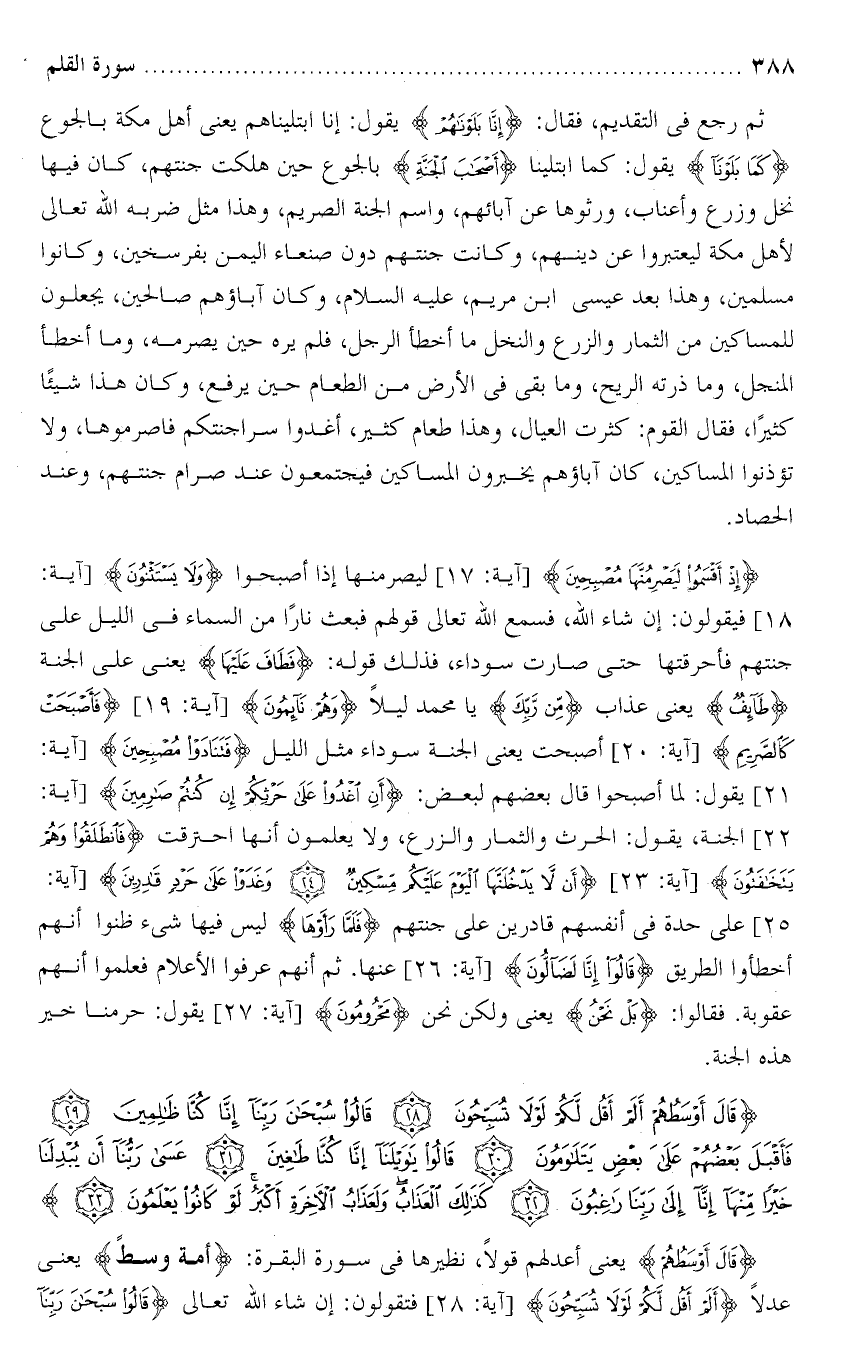 ٣٨٨ ........................................................................ سورة القلم
ثم رجع فى التقديم، فقال: ﴿إِنَّا بَلَوْنَٰهُمْ﴾ يقول: إنا ابتليناهم يعنى أهل مكة بالجوع
﴿كَمَا بَلَوْنَآ﴾ يقول: كما ابتلينا ﴿أَصْحَٰبَ ٱلْجَنَّةِ﴾ بالجوع حين هلكت جنتهم، كان فيها
نخل وزرع وأعناب، ورثوها عن آبائهم، واسم الجنة الصريم، وهذا مثل ضربه الله تعالى
لأهل مكة ليعتبروا عن دينهم، وكانت جنتهم دون صنعاء اليمن بفرسخين، وكانوا
مسلمين، وهذا بعد عيسى ابن مريم، عليه السلام، وكان آباؤهم صالحين، يجعلون
للمساكين من الثمار والزرع والنخل ما أخطأ الرجل، فلم يره حين يصرمه، وما أخطأ
المنجل، وما ذرته الريح، وما بقى فى الأرض من الطعام حين يرفع، وكان هذا شيئًا
كثيرًا، فقال القوم: كثرت العيال، وهذا طعام كثير، أغدوا سراجنتكم فاصرموها، ولا
تؤذنوا المساكين، كان آباؤهم يخبرون المساكين فيجتمعون عند صرام جنتهم، وعند
الحصاد.
﴿إِذْ أَقْسَمُوا۟ لَيَصْرِمُنَّهَا مُصْبِحِينَ﴾ [آية: ١٧] ليصرمنها إذا أصبحوا ﴿وَلَا يَسْتَثْنُونَ﴾ [آية:
١٨] فيقولون: إن شاء الله، فسمع الله تعالى قولهم فبعث نارًا من السماء فى الليل على
جنتهم فأحرقتها حتى صارت سوداء، فذلك قوله: ﴿فَطَافَ عَلَيْهَا﴾ يعنى على الجنة
﴿طَآئِفٌ﴾ يعنى عذاب ﴿مِّن رَّبِّكَ﴾ يا محمد ليلاً ﴿وَهُمْ نَآئِمُونَ﴾ [آية: ١٩] ﴿فَأَصْبَحَتْ
كَٱلصَّرِيمِ﴾ [آية: ٢٠] أصبحت يعنى الجنة سوداء مثل الليل ﴿فَتَنَادَوْا۟ مُصْبِحِينَ﴾ [آية:
٢١] يقول: لما أصبحوا قال بعضهم لبعض: ﴿أَنِ ٱغْدُوا۟ عَلَىٰ حَرْثِكُمْ إِن كُنتُمْ صَٰرِمِينَ﴾ [آية:
٢٢] الجنة، يقول: الحرث والثمار والزرع، ولا يعلمون أنها احترقت ﴿فَٱنطَلَقُوا۟ وَهُمْ
يَتَخَٰفَتُونَ﴾ [آية: ٢٣] ﴿أَن لَّا يَدْخُلَنَّهَا ٱلْيَوْمَ عَلَيْكُم مِّسْكِينٌ ٢٤ وَغَدَوْا۟ عَلَىٰ حَرْدٍ قَٰدِرِينَ﴾ [آية:
٢٥] على حدة فى أنفسهم قادرين على جنتهم ﴿فَلَمَّا رَأَوْهَا﴾ ليس فيها شىء ظنوا أنهم
أخطأوا الطريق ﴿قَالُوٓا۟ إِنَّا لَضَآلُّونَ﴾ [آية: ٢٦] عنها. ثم أنهم عرفوا الأعلام فعلموا أنهم
عقوبة. فقالوا: ﴿بَلْ نَحْنُ﴾ يعنى ولكن نحن ﴿مَحْرُومُونَ﴾ [آية: ٢٧] يقول: حرمنا خير
هذه الجنة.
﴿قَالَ أَوْسَطُهُمْ أَلَمْ أَقُل لَّكُمْ لَوْلَا تُسَبِّحُونَ ٢٨ قَالُوا۟ سُبْحَٰنَ رَبِّنَآ إِنَّا كُنَّا ظَٰلِمِينَ ٢٩
فَأَقْبَلَ بَعْضُهُمْ عَلَىٰ بَعْضٍ يَتَلَٰوَمُونَ ٣٠ قَالُوا۟ يَٰوَيْلَنَآ إِنَّا كُنَّا طَٰغِينَ ٣١ عَسَىٰ رَبُّنَآ أَن يُبْدِلَنَا
خَيْرًا مِّنْهَآ إِنَّآ إِلَىٰ رَبِّنَا رَٰغِبُونَ ٣٢ كَذَٰلِكَ ٱلْعَذَابُ ۖ وَلَعَذَابُ ٱلْءَاخِرَةِ أَكْبَرُ ۚ لَوْ كَانُوا۟ يَعْلَمُونَ ٣٣﴾
﴿قَالَ أَوْسَطُهُمْ﴾ يعنى أعدلهم قولاً، نظيرها فى سورة البقرة: ﴿أمة وسطاً﴾ يعنى
عدلاً ﴿أَلَمْ أَقُل لَّكُمْ لَوْلَا تُسَبِّحُونَ﴾ [آية: ٢٨] فتقولون: إن شاء الله تعالى ﴿قَالُوا۟ سُبْحَٰنَ رَبِّنَآ